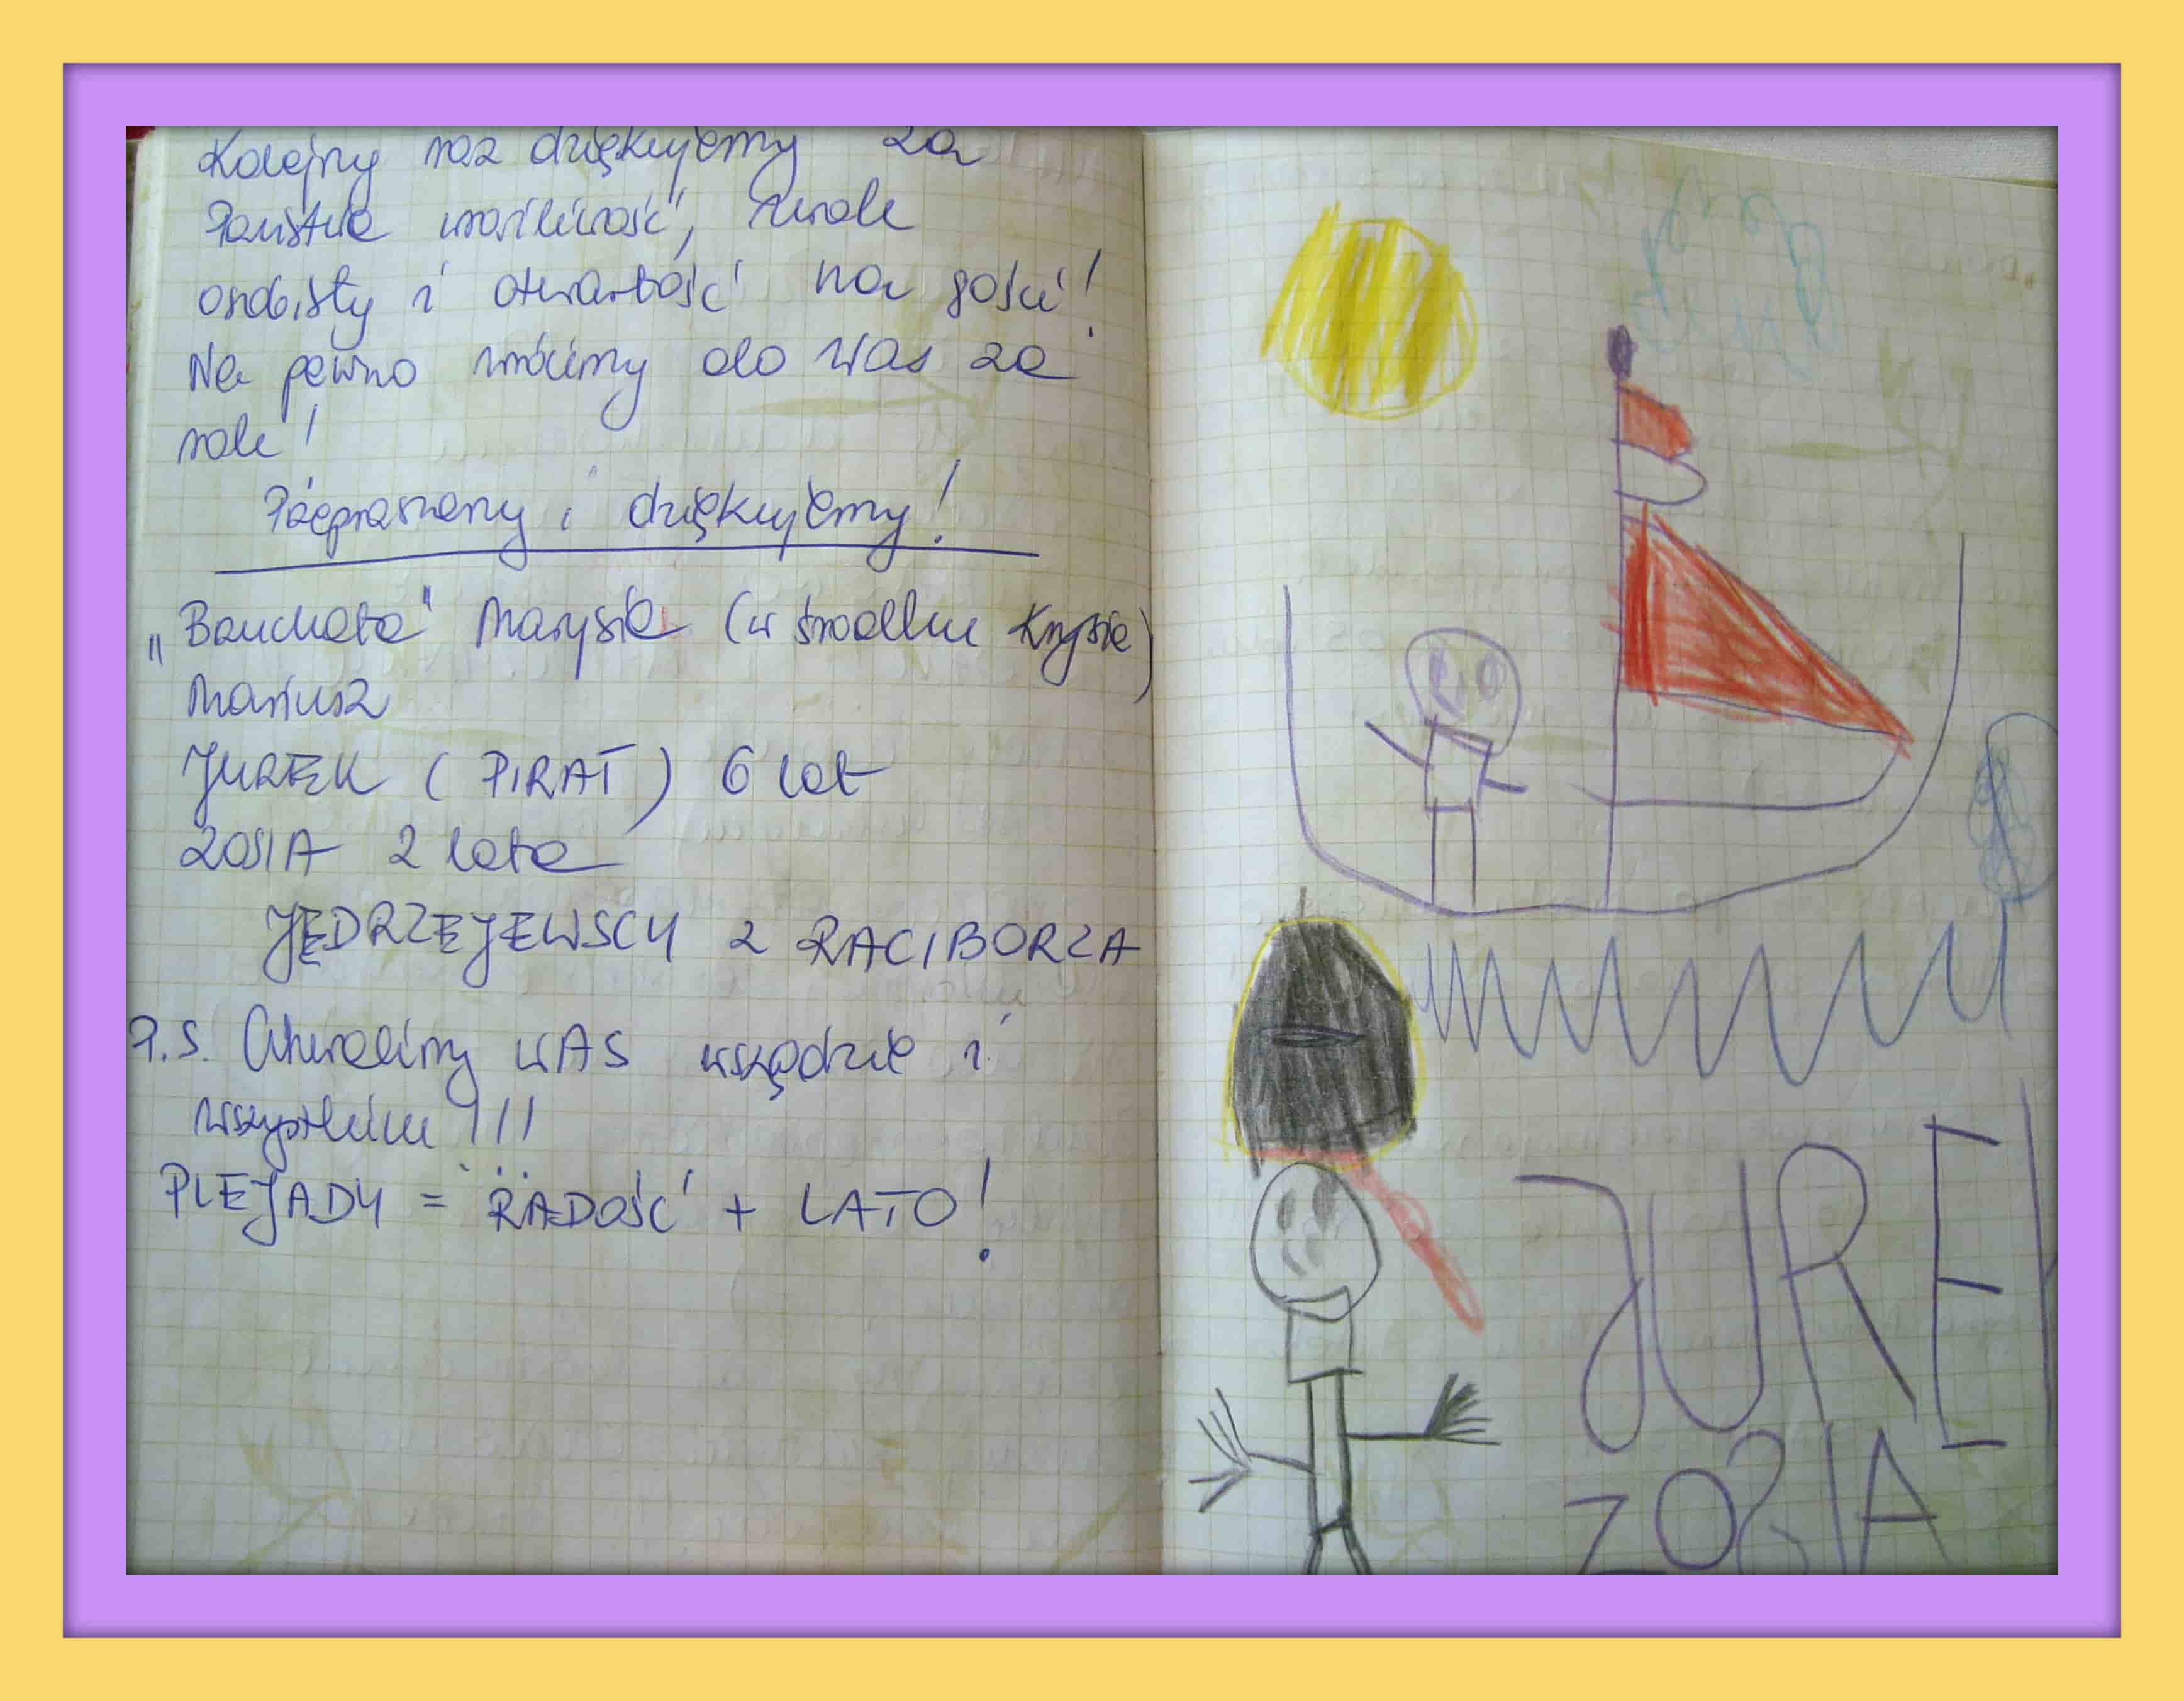 Kolejny raz dziękujemy za
Państwa wrażliwość, urok
osobisty i otwartość na gości!
Na pewno wrócimy do Was za
rok!
Przepraszamy i dziękujemy!
„Bauchata" Marysia (w środku Krysia)
Mariusz
JUREK (PIRAT) 6 lat
ZOSIA 2 lata
JĘDRZEJEWSCY z RACIBORZA
P.S. Chwalimy WAS wszędzie i
wszystkim!!!
PLEJADY = RADOŚĆ + LATO!
JUREK
ZOSIA